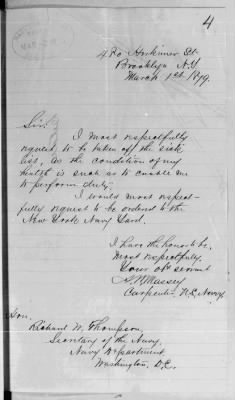 4
480 Herkimer St.
Brooklyn N.Y.
March 1st 1879.
Sir:
I most respectfully
request to be taken off the sick
list, as the condition of my
health is such as to enable me
to perform duty.
I would most respect-
fully request to be ordered to the
New York Navy Yard.
I have the honor to be,
most respectfully,
Your obt servant
Massey
Carpenter U.S. Navy.
Hon.
Richard W. Thompson,
Secretary of the Navy,
Navy Department,
Washington, D.C.